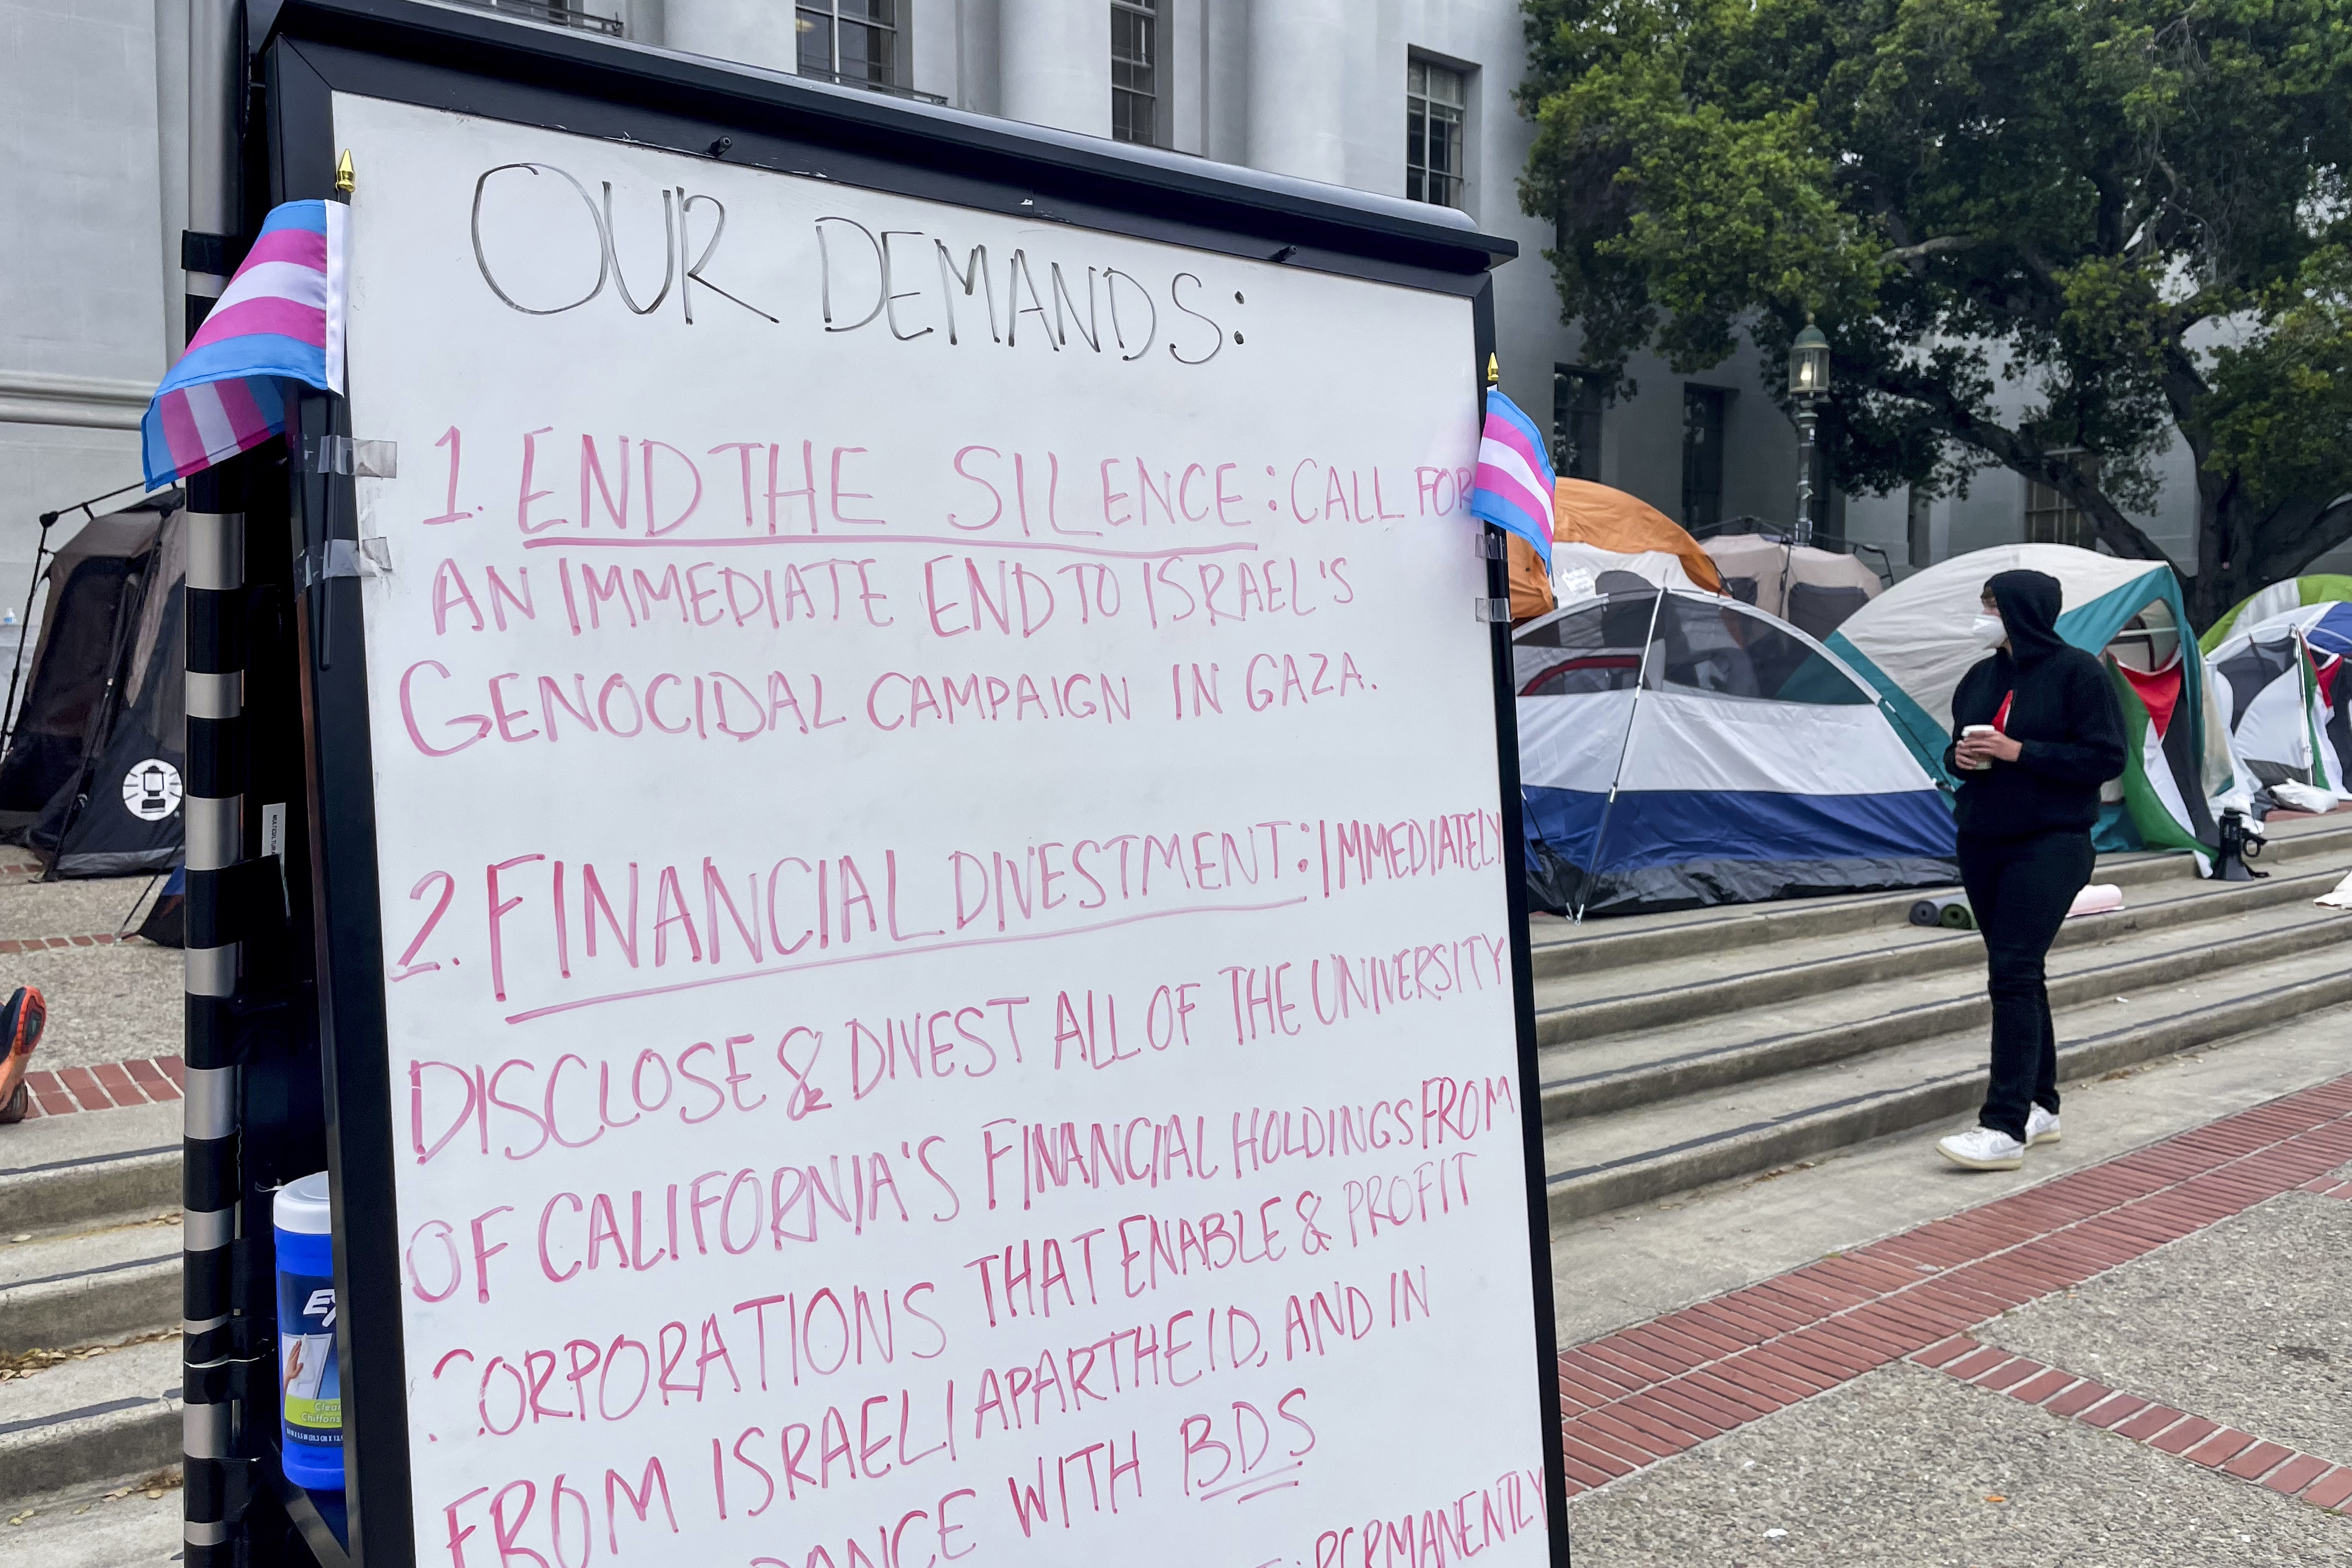 OUR DEMANDS:
1. END THE SILENCE: CALL FOR
AN IMMEDIATE END TO ISRAEL'S
GENOCIDAL CAMPAIGN IN GAZA.
2. FINANCIAL DIVESTMENT: IMMEDIATELY
DISCLOSE & DIVEST ALL OF THE UNIVERSITY
OF CALIFORNIA'S FINANCIAL HOLDINGS FROM
CORPORATIONS THAT ENABLE & PROFIT
FROM ISRAELI APARTHEID, AND IN
WITH BDS
PERMANENTLY